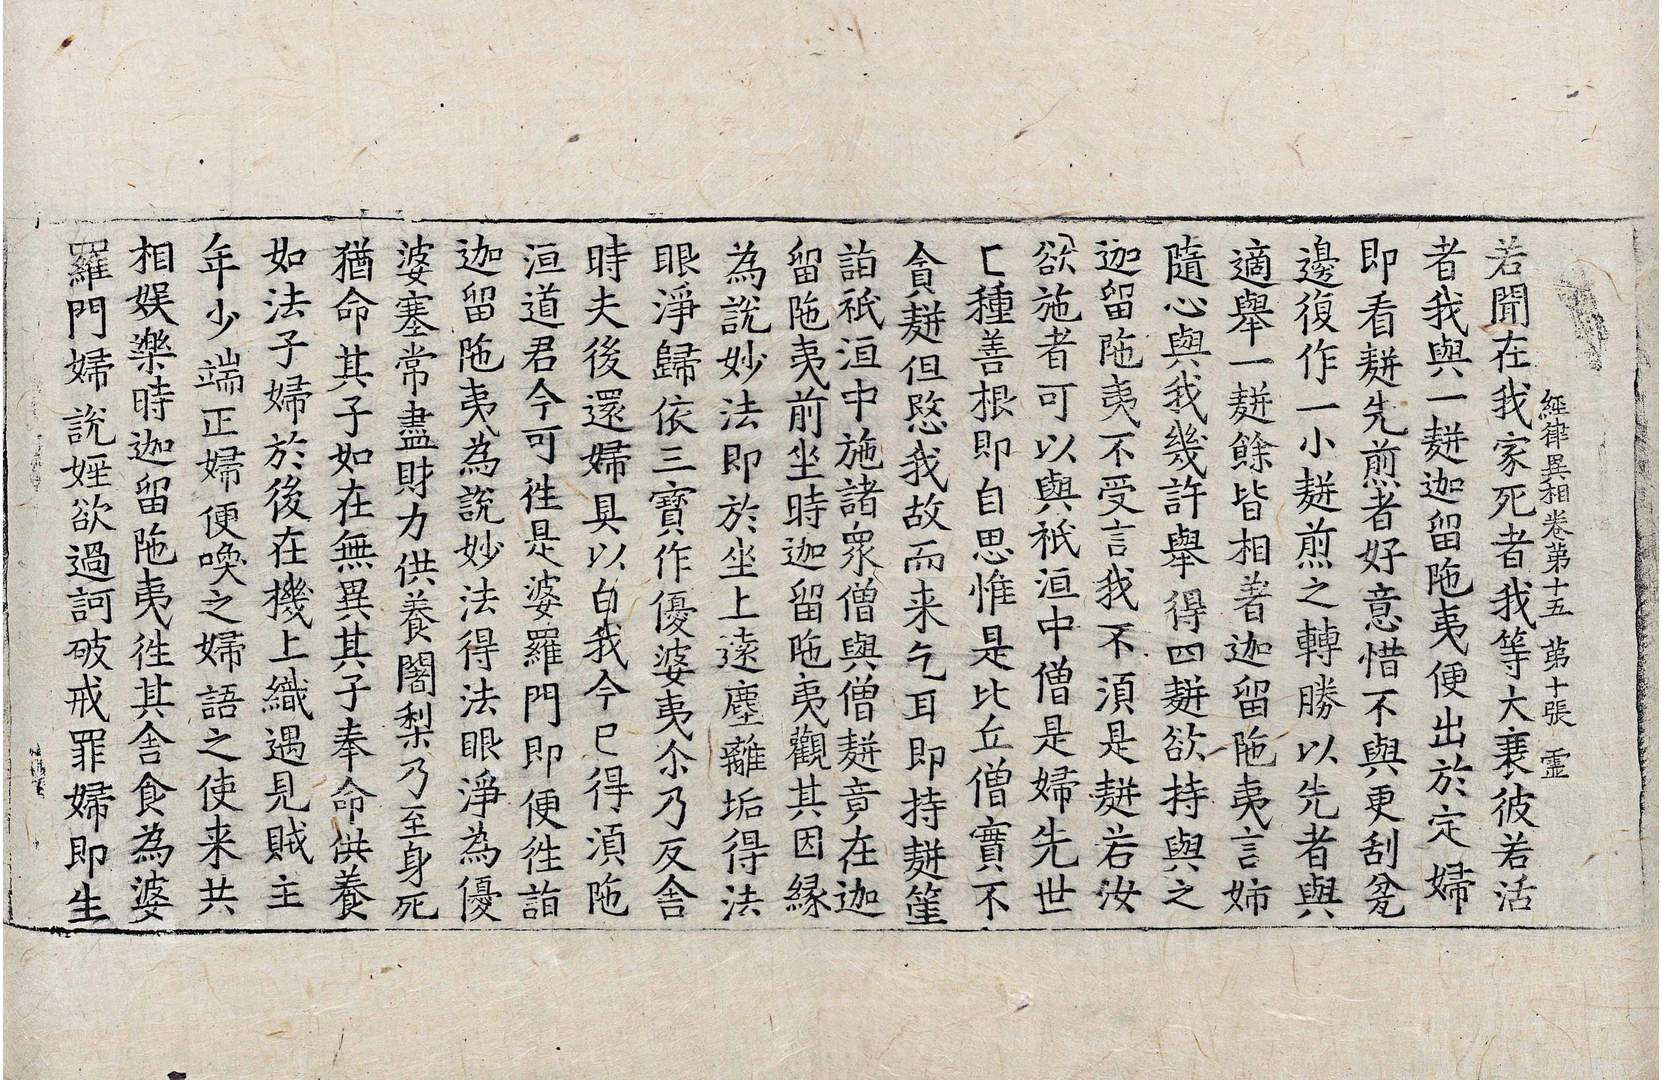 經律異相卷第十五　第十張　霊
若聞在我家死者我等大衰彼若活
者我與一䴵迦留陁夷便出於定婦
即看䴵先煎者好意惜不與更刮瓫
邊復作一小䴵煎之轉勝以先者與
適舉一䴵餘皆相著迦留陁夷言姉
隨心與我幾許舉得四䴵欲持與之
迦留陁夷不受言我不湏是䴵若汝
欲施者可以與祇洹中僧是婦先世
種善根即自思惟是比丘僧實不
貪䴵但愍我故而来乞耳即持䴵篚
詣祇洹中施諸眾僧與僧䴵竟在迦
留陁夷前坐時迦留陁夷觀其因縁
為說妙法即於坐上逺塵離垢得法
眼淨歸依三寶作優婆夷尒乃反舎
時夫後還婦具以白我今已得湏陁
洹道君今可徃是婆羅門即便徃詣
迦留陁夷為說妙法得法眼淨為優
婆塞常盡財力供養闍梨乃至身死
猶命其子如在無異其子奉命供養
如法子婦於後在機上織遇見賊主
年少端正婦便喚之婦語之使来共
相娱樂時迦留陁夷徃其舎食為婆
羅門婦說婬欲過訶破戒罪婦即生